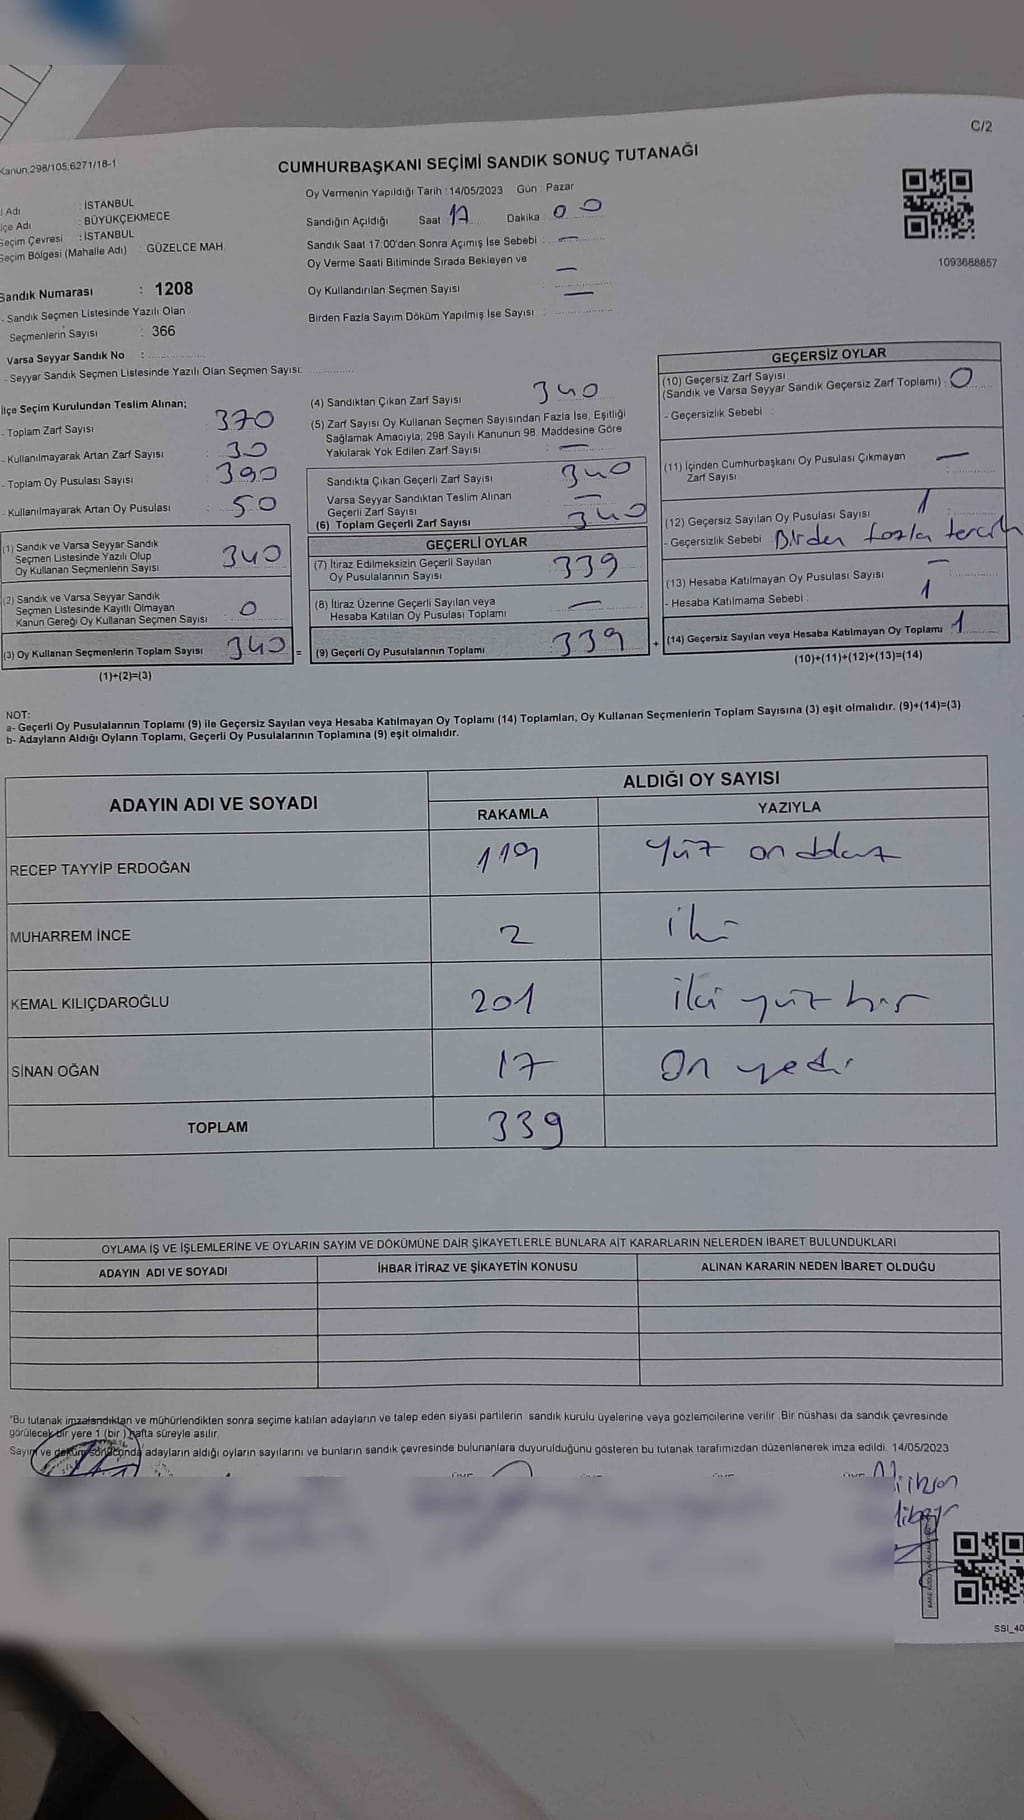 C/2
Kanun,298/105,6271/18-1
CUMHURBAŞKANI SEÇİMİ SANDIK SONUÇ TUTANAĞI
l Adı : İSTANBUL
lçe Adı : BÜYÜKÇEKMECE
Seçim Çevresi : İSTANBUL
Seçim Bölgesi (Mahalle Adı) : GÜZELCE MAH.
Oy Vermenin Yapıldığı Tarih : 14/05/2023 Gün : Pazar
Sandığın Açıldığı Saat 17 Dakika 00
Sandık Saat 17:00'den Sonra Açımış İse Sebebi : —
Oy Verme Saati Bitiminde Sırada Bekleyen ve
Oy Kullandırılan Seçmen Sayısı : —
Birden Fazla Sayım Döküm Yapılmış İse Sayısı : —
1093688857
Sandık Numarası : 1208
- Sandık Seçmen Listesinde Yazılı Olan
Seçmenlerin Sayısı : 366
Varsa Seyyar Sandık No :
- Seyyar Sandık Seçmen Listesinde Yazılı Olan Seçmen Sayısı:
İlçe Seçim Kurulundan Teslim Alınan;
- Toplam Zarf Sayısı : 370
- Kullanılmayarak Artan Zarf Sayısı : 30
- Toplam Oy Pusulası Sayısı : 390
- Kullanılmayarak Artan Oy Pusulası : 50
(1) Sandık ve Varsa Seyyar Sandık
Seçmen Listesinde Yazılı Olup
Oy Kullanan Seçmenlerin Sayısı : 340
(2) Sandık ve Varsa Seyyar Sandık
Seçmen Listesinde Kayıtlı Olmayan
Kanun Gereği Oy Kullanan Seçmen Sayısı : 0
(3) Oy Kullanan Seçmenlerin Toplam Sayısı 340 =
(1)+(2)=(3)
(4) Sandıktan Çıkan Zarf Sayısı 340
(5) Zarf Sayısı Oy Kullanan Seçmen Sayısından Fazla İse, Eşitliği
Sağlamak Amacıyla, 298 Sayılı Kanunun 98. Maddesine Göre
Yakılarak Yok Edilen Zarf Sayısı : —
Sandıkta Çıkan Geçerli Zarf Sayısı : 340
Varsa Seyyar Sandıktan Teslim Alınan
Geçerli Zarf Sayısı : —
(6) Toplam Geçerli Zarf Sayısı 340
GEÇERLİ OYLAR
(7) İtiraz Edilmeksizin Geçerli Sayılan
Oy Pusulalarının Sayısı : 339
(8) İtiraz Üzerine Geçerli Sayılan veya
Hesaba Katılan Oy Pusulası Toplamı : —
(9) Geçerli Oy Pusulalarının Toplamı : 339 +
GEÇERSİZ OYLAR
(10) Geçersiz Zarf Sayısı
(Sandık ve Varsa Seyyar Sandık Geçersiz Zarf Toplamı) : 0
- Geçersizlik Sebebi :
(11) İçinden Cumhurbaşkanı Oy Pusulası Çıkmayan
Zarf Sayısı : —
(12) Geçersiz Sayılan Oy Pusulası Sayısı : 1
- Geçersizlik Sebebi : Birden fazla tercih
(13) Hesaba Katılmayan Oy Pusulası Sayısı : —
- Hesaba Katılmama Sebebi : 1
(14) Geçersiz Sayılan veya Hesaba Katılmayan Oy Toplamı : 1
(10)+(11)+(12)+(13)=(14)
NOT:
a- Geçerli Oy Pusulalarının Toplamı (9) ile Geçersiz Sayılan veya Hesaba Katılmayan Oy Toplamı (14) Toplamları, Oy Kullanan Seçmenlerin Toplam Sayısına (3) eşit olmalıdır. (9)+(14)=(3)
b- Adayların Aldığı Oyların Toplamı, Geçerli Oy Pusulalarının Toplamına (9) eşit olmalıdır.
ADAYIN ADI VE SOYADI
ALDIĞI OY SAYISI
RAKAMLA YAZIYLA
RECEP TAYYİP ERDOĞAN 119 Yüz on dokuz
MUHARREM İNCE 2 iki
KEMAL KILIÇDAROĞLU 201 iki yüz bir
SİNAN OĞAN 17 On yedi
TOPLAM 339
OYLAMA İŞ VE İŞLEMLERİNE VE OYLARIN SAYIM VE DÖKÜMÜNE DAİR ŞİKAYETLERLE BUNLARA AİT KARARLARIN NELERDEN İBARET BULUNDUKLARI
ADAYIN ADI VE SOYADI İHBAR İTİRAZ VE ŞİKAYETİN KONUSU ALINAN KARARIN NEDEN İBARET OLDUĞU
"Bu tutanak imzalandıktan ve mühürlendikten sonra seçime katılan adayların ve talep eden siyasi partilerin sandık kurulu üyelerine veya gözlemcilerine verilir. Bir nüshası da sandık çevresinde
görülecek bir yere 1 (bir) hafta süreyle asılır.
Sayım ve döküm sonucunda adayların aldığı oyların sayılarını ve bunların sandık çevresinde bulunanlara duyurulduğunu gösteren bu tutanak tarafımızdan düzenlenerek imza edildi. 14/05/2023
SSI_40